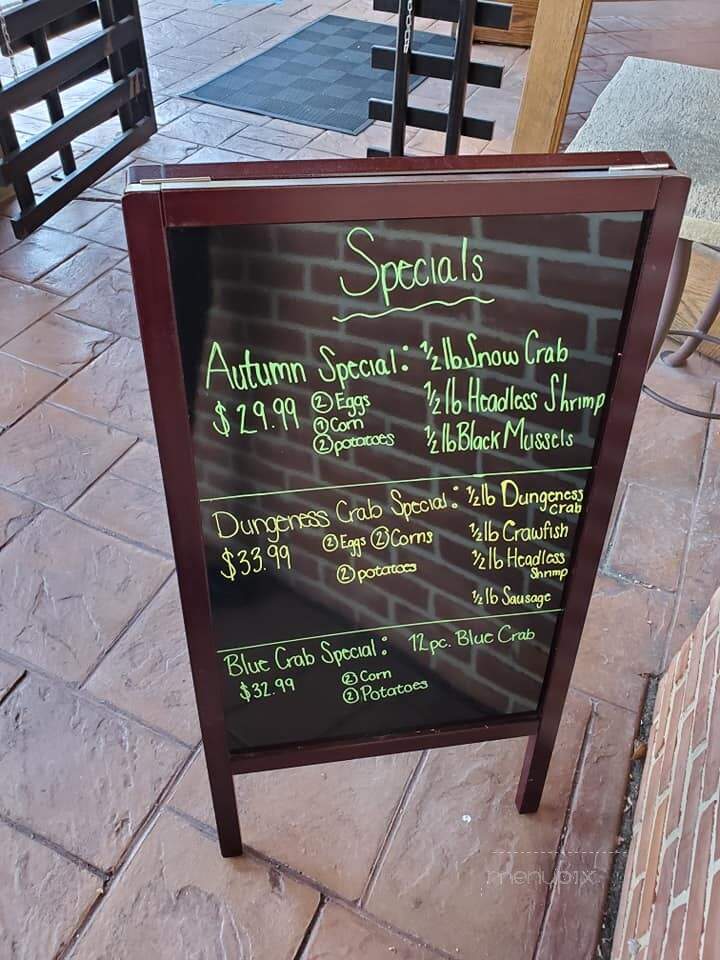 Specials
Autumn Special: 1/2 lb Snow Crab
$29.99 ② Eggs 1/2 lb Headless Shrimp
① Corn
② potatoes 1/2 lb Black Mussels
Dungeness Crab Special: 1/2 lb Dungeness Crab
$33.99 ② Eggs ② Corns 1/2 lb Crawfish
② potatoes 1/2 lb Headless Shrimp
1/2 lb Sausage
Blue Crab Special: 12pc. Blue Crab
$32.99 ② Corn
② Potatoes
menupix